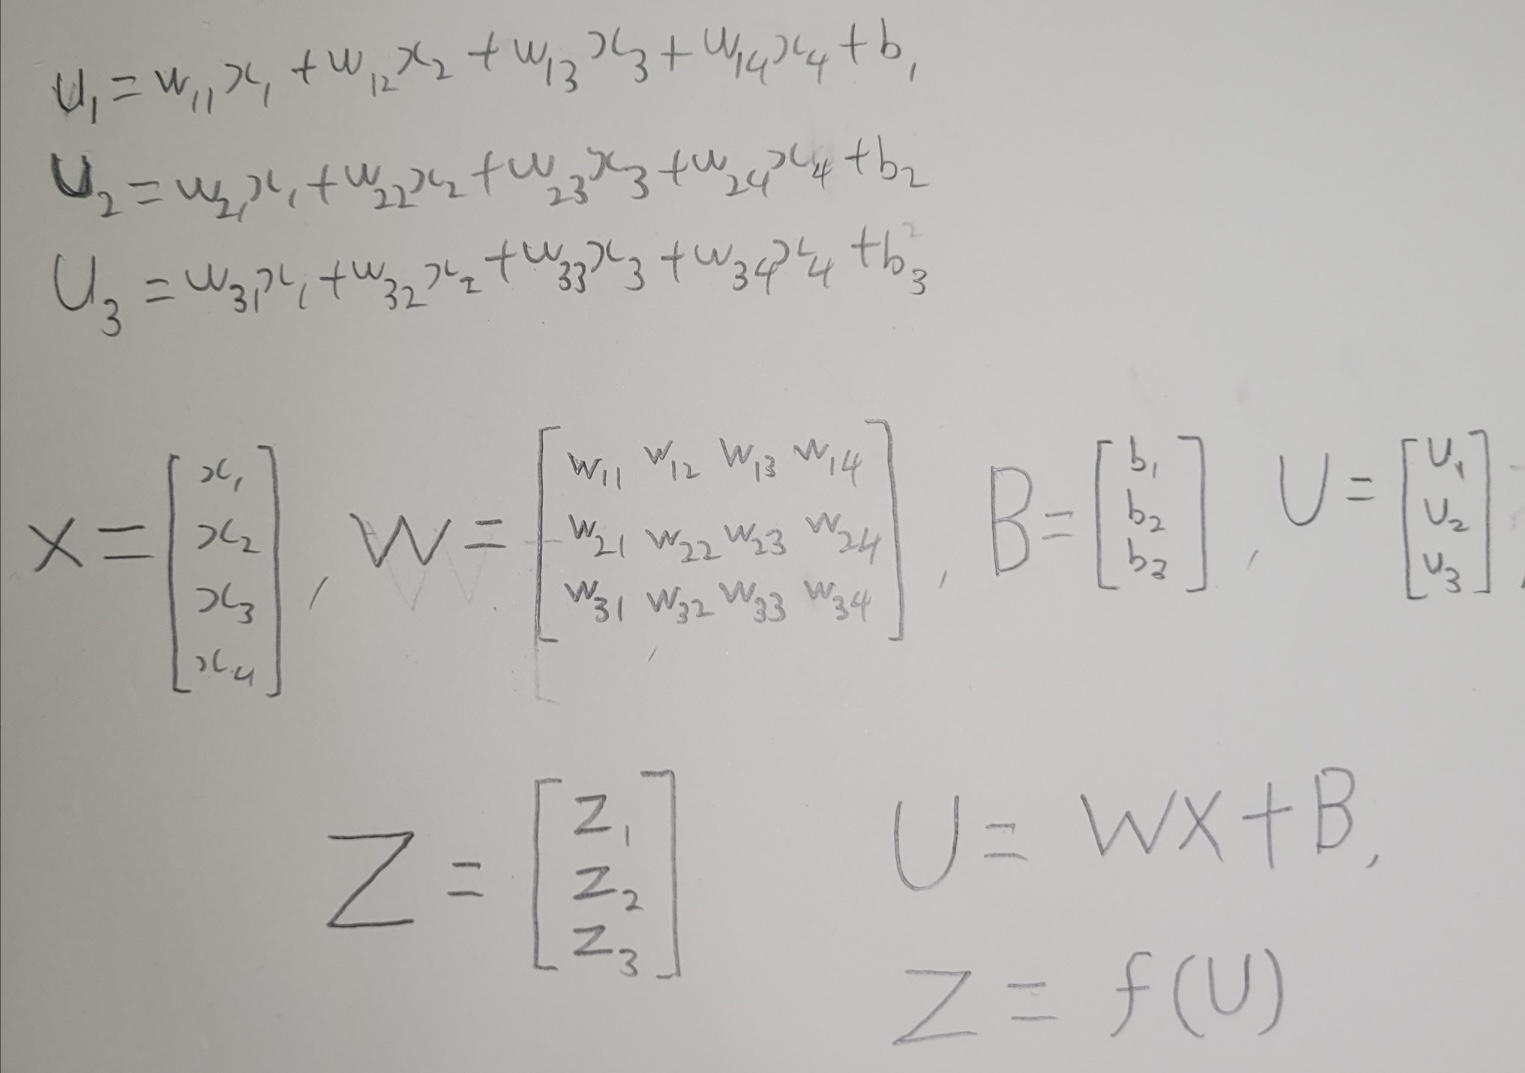 U₁ = w₁₁x₁ + w₁₂x₂ + w₁₃x₃ + w₁₄x₄ + b₁
U₂ = w₂₁x₁ + w₂₂x₂ + w₂₃x₃ + w₂₄x₄ + b₂
U₃ = w₃₁x₁ + w₃₂x₂ + w₃₃x₃ + w₃₄x₄ + b₃
X = [x₁ x₂ x₃ x₄], W = [w₁₁ w₁₂ w₁₃ w₁₄ w₂₁ w₂₂ w₂₃ w₂₄ w₃₁ w₃₂ w₃₃ w₃₄], B = [b₁ b₂ b₃], U = [U₁ U₂ U₃],
Z = [z₁ z₂ z₃] U = WX + B,
Z = f(U)